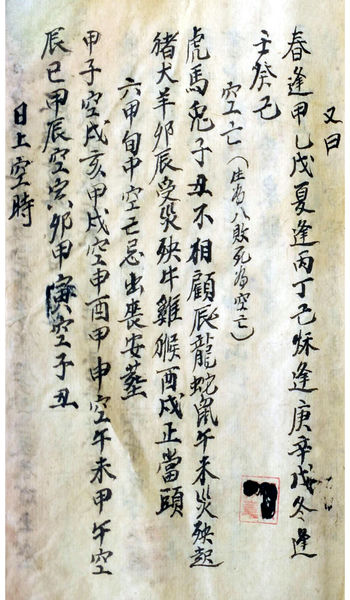 又曰
春逢甲乙戊夏逢丙丁己秌逢庚辛戊冬逢
壬癸己
空亡(生为八敗死為空亡)
虎馬兎子丑不相顧辰龍蛇鼠午未災殃起
猪犬羊卯辰受災殃牛雞猴酉戍正當頭
六甲旬中空亡忌出喪安塟
甲子空戍亥甲戍空申酉甲申空午未甲午空
辰巳甲辰空寅卯甲寅空子丑
日上空時